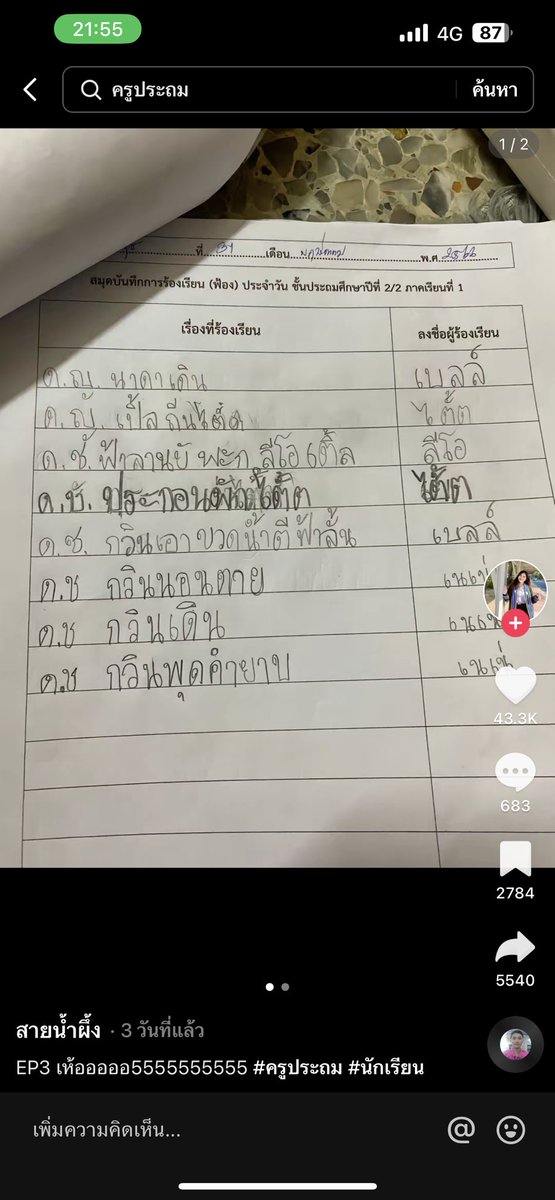 21:55
4G 87
ครูประถม ค้นหา
1 / 2
ที่ 31 เดือน พฤษภาคม พ.ศ. 2566
สมุดบันทึกการร้องเรียน (ฟ้อง) ประจำวัน ชั้นประถมศึกษาปีที่ 2/2 ภาคเรียนที่ 1
เรื่องที่ร้องเรียน ลงชื่อผู้ร้องเรียน
ด.ญ. นาดาเดิน เบลล์
ด.ญ. ไต้ต
ด.ช. ลีโอ
ด.ช. ประกอน ไต้ต
ด.ช. กวินเอาขวดน้ำตีฟ้าลั้น เบลล์
ด.ช กวินนอนตาย เนเน่
ด.ช กวินเดิน เนเน่
ด.ช กวินพุดคำยาบ เนเน่
43.3K
683
2784
5540
สายน้ำผึ้ง · 3 วันที่แล้ว
EP3 เห้อออออ5555555555 #ครูประถม #นักเรียน
เพิ่มความคิดเห็น...